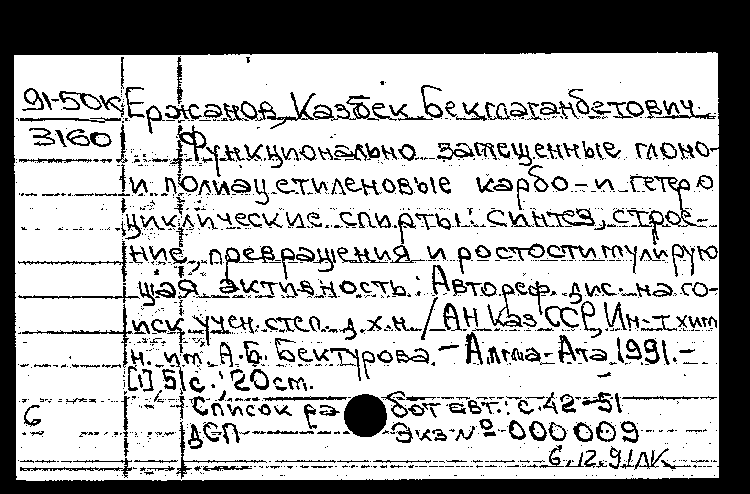 91-50К Ержанов, Казбек Бекмаганбетович.
3160 Функционально замещенные моно-
и полиацетиленовые карбо- и гетеро
циклические спирты: синтез, строе-
ние, превращения и ростостимулирую
щая активность: Автореф. дис. на со-
иск. учен. степ. д.х.н. / АН КазССР, Ин-т хим
н. им. А.Б. Бектурова. - Алма-Ата, 1991. -
[1], 51 с.; 20 см.
Список работ авт.: с. 42-51
6 ДСП Экз № 000009
6.12.91 ЛК